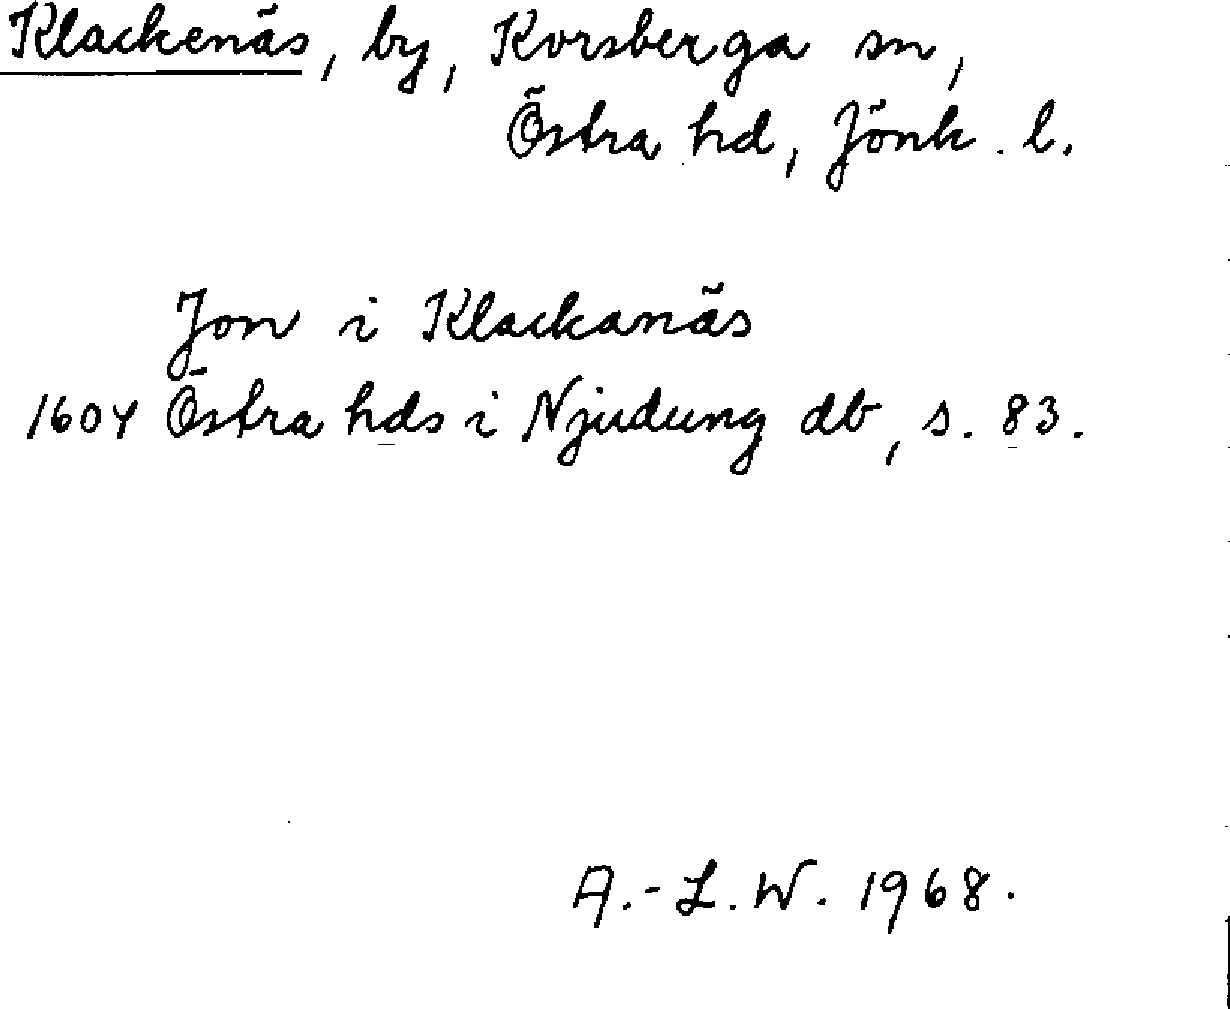 Klackenäs, by, Korsberga sn,
Östra hd, Jönk. l.
Jon i Klackanäs
1604 Östra hds i Njudung db, s. 83.
A.-L.W. 1968.